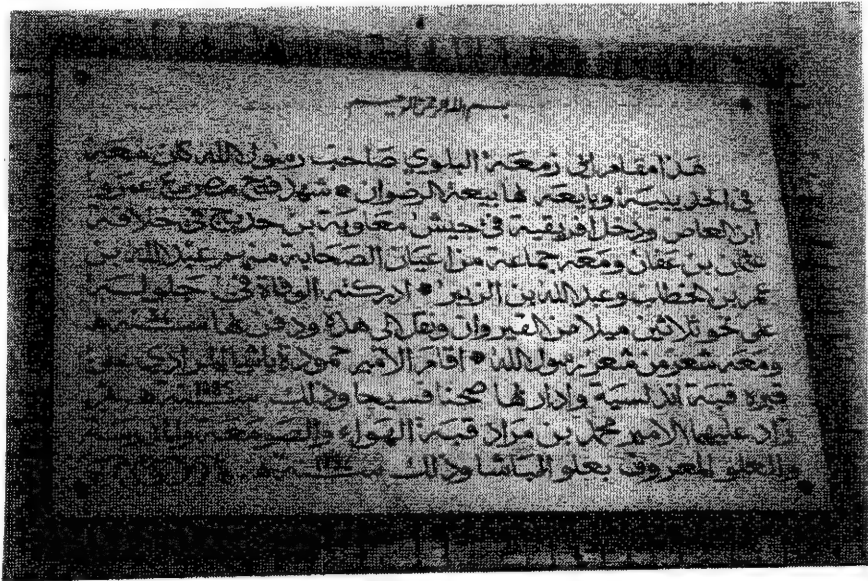 بسم الله الرحمن الرحيم
هذا مقام ابي زمعة البلوي صاحب رسول الله كان معه
في الحديبية وبايعه بها بيعة الرضوان • شهد فتح مصر مع عمرو
ابن العاص ودخل افريقية في جيش معاوية بن حديج في خلافة
عثمن بن عفان ومعه جماعة من اعيان الصحابة منهم عبد الله بن
عمر بن الخطاب وعبد الله بن الزبير • ادركته الوفاة في جلولة
على نحو ثلاثين ميلا من القيروان ونقل الى هذه ودفن بها سنة 34 ه
ومعه شعر من شعر رسول الله • اقام الامير حمودة باشا المرادي على
قبره قبة اندلسية وادار بها صحنا فسيحا وذلك سنة 1085 ه ثم
زاد عليها الامير محمد بن مراد قبة الهواء والصومعة والمدرسة
والعلو المعروف بعلو الباشا وذلك سنة ه